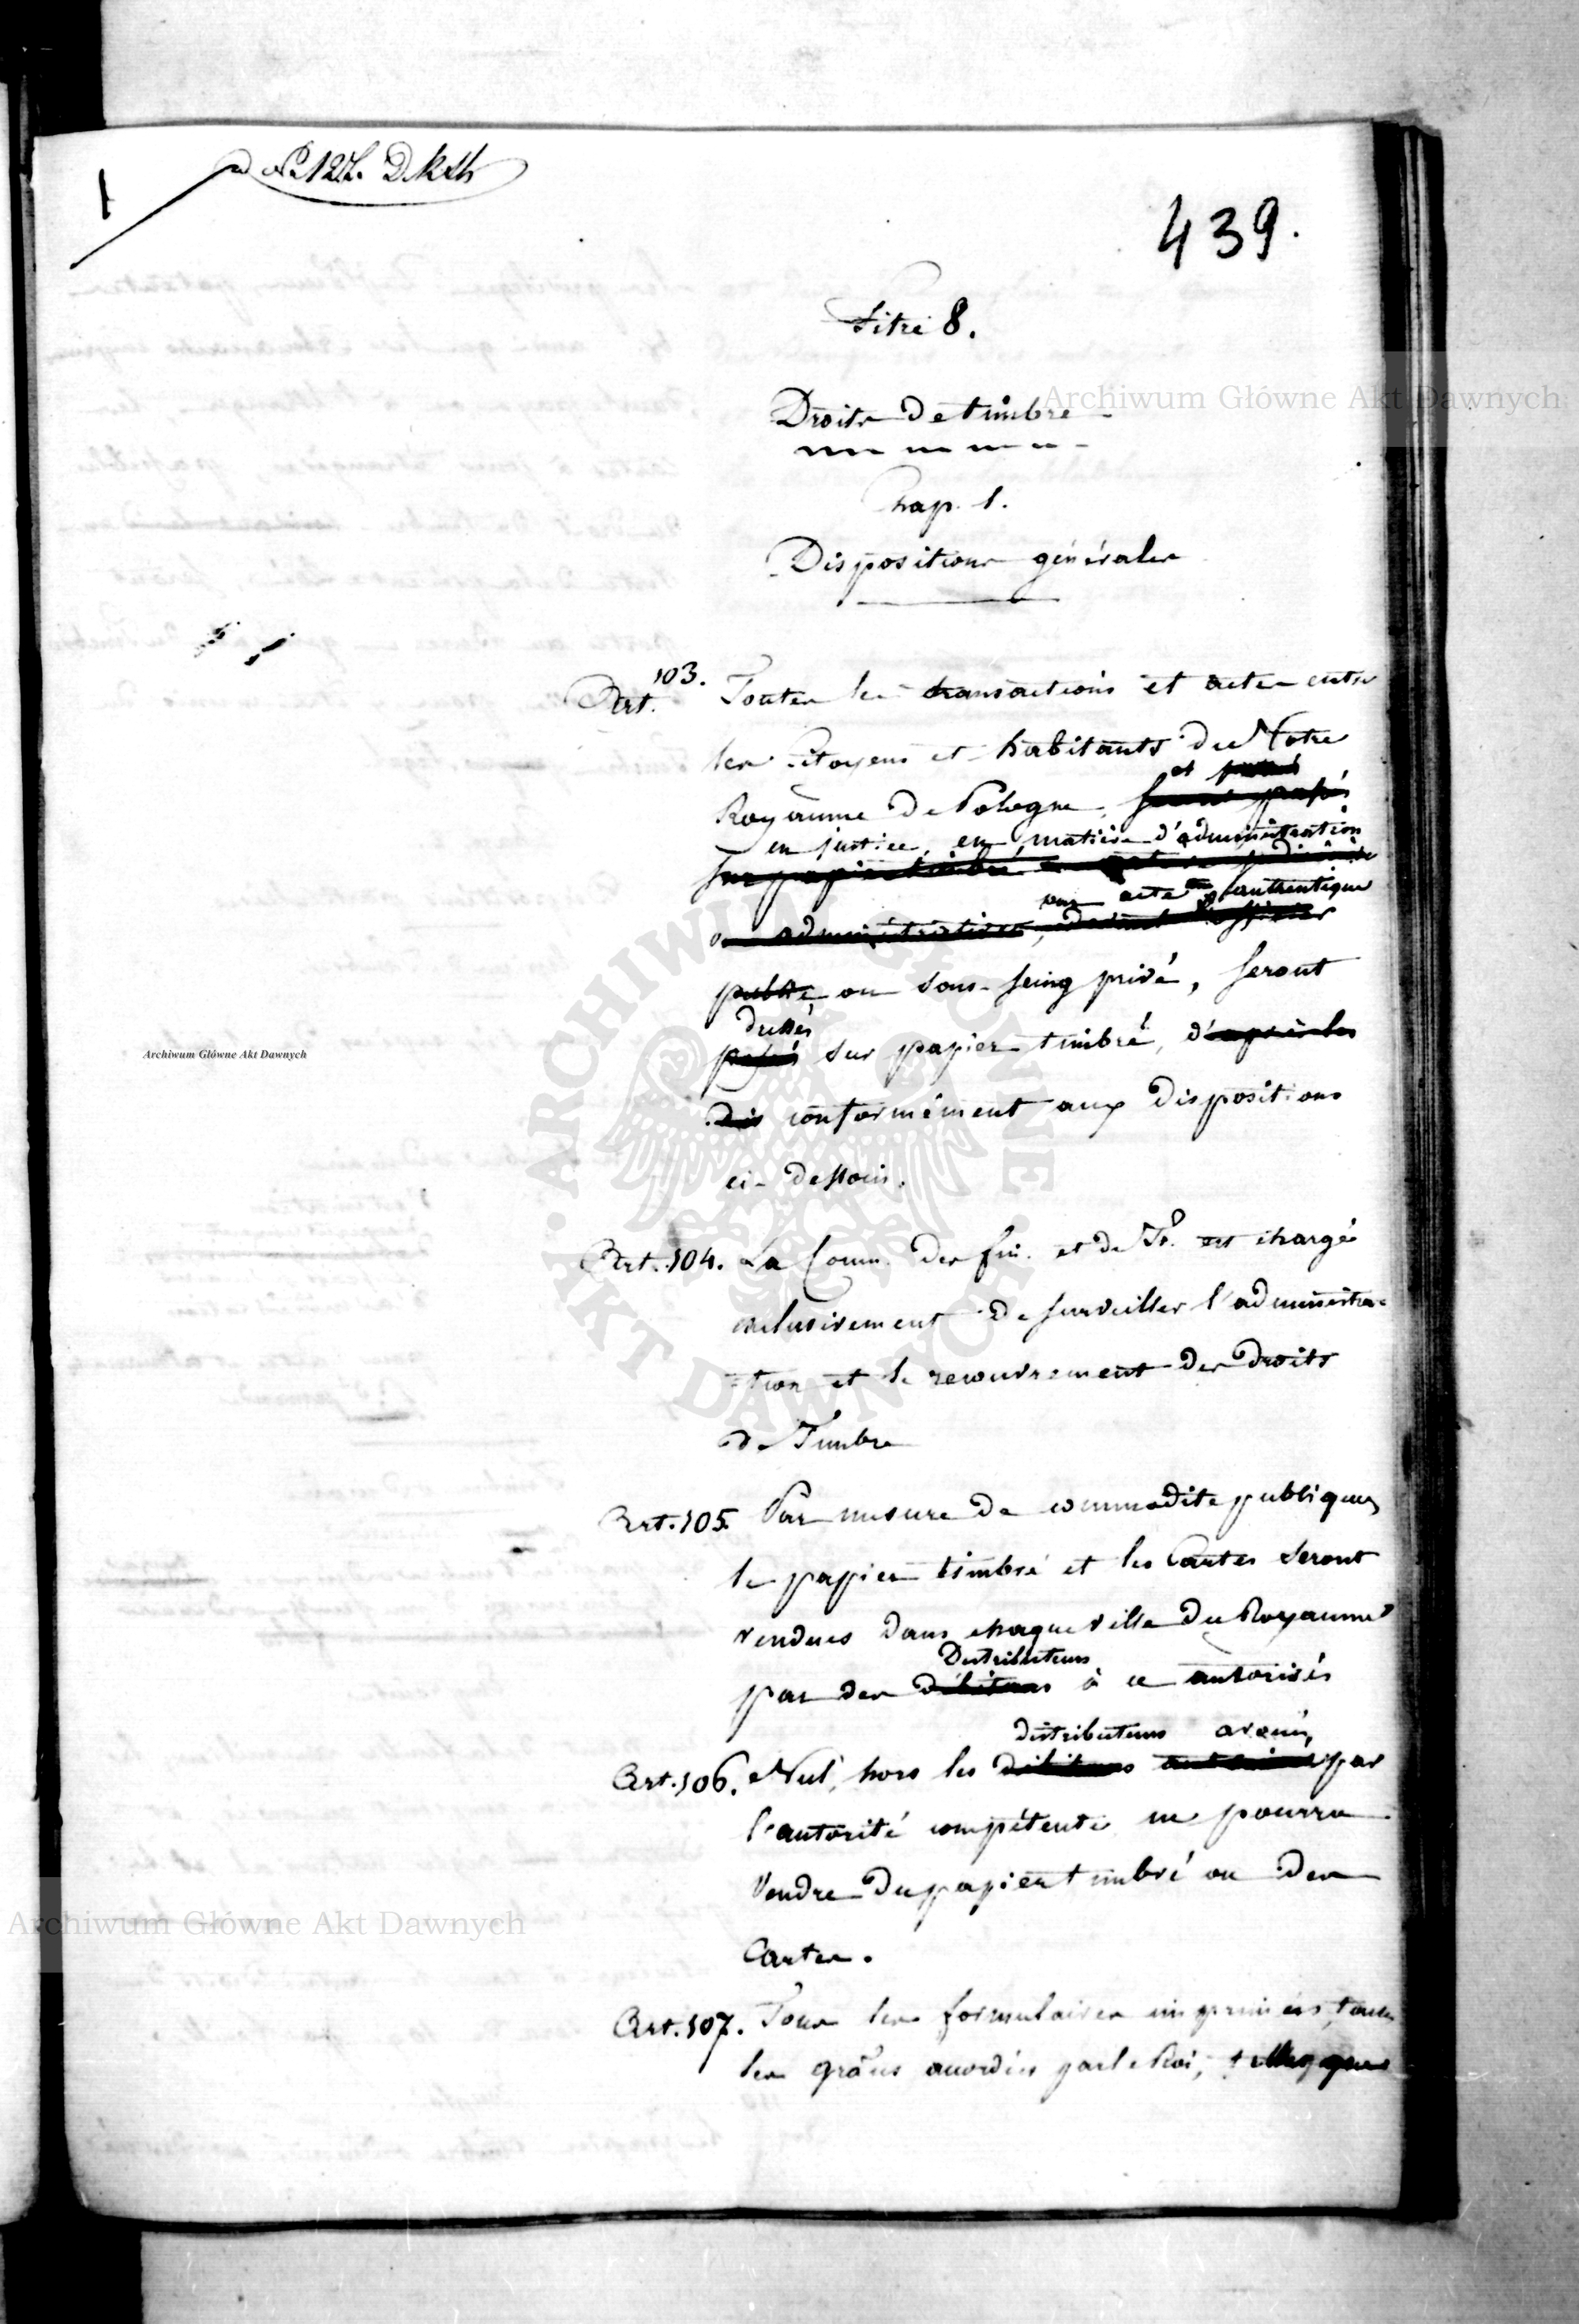 1
ad No 127. D.K.Sb
439.
Titre 8.
Droits de timbre
Chap. 1.
Dispositions générales
Art. 103. Toutes les transactions et actes entre
les Citoyens et habitants de Notre
et passés
Royaume de Pologne, seront passés
en justice, en matière d'administration
sur papier timbré en matière judiciaire
par acte authentique
ou administrative, devant l'officier
public ou sous-seing privé, seront
dressés
passés sur papier timbré, d'après les
dis conformément aux dispositions
ci-dessous.
Art. 104. La Comm. des fin. et de Tr. est chargée
exclusivement de surveiller l'administra-
-tion et le recouvrement des Droits
de Timbre
Art. 105. Par mesure de commodité publique,
le papier timbré et les Cartes seront
vendues dans chaque ville du Royaume
Distributeurs
par des débitans à ce autorisés
distributeurs avoués
Art. 106. Nul, hors les débitans autorisés par
l'autorité compétente ne pourra
vendre du papier timbré ou des
Cartes.
Art. 107. Tous les formulaires imprimés, toutes
les grâces accordées par le Roi, telles que
Archiwum Główne Akt Dawnych
Archiwum Główne Akt Dawnych
Archiwum Główne Akt Dawnych
ARCHIWUM GŁÓWNE AKT DAWNYCH